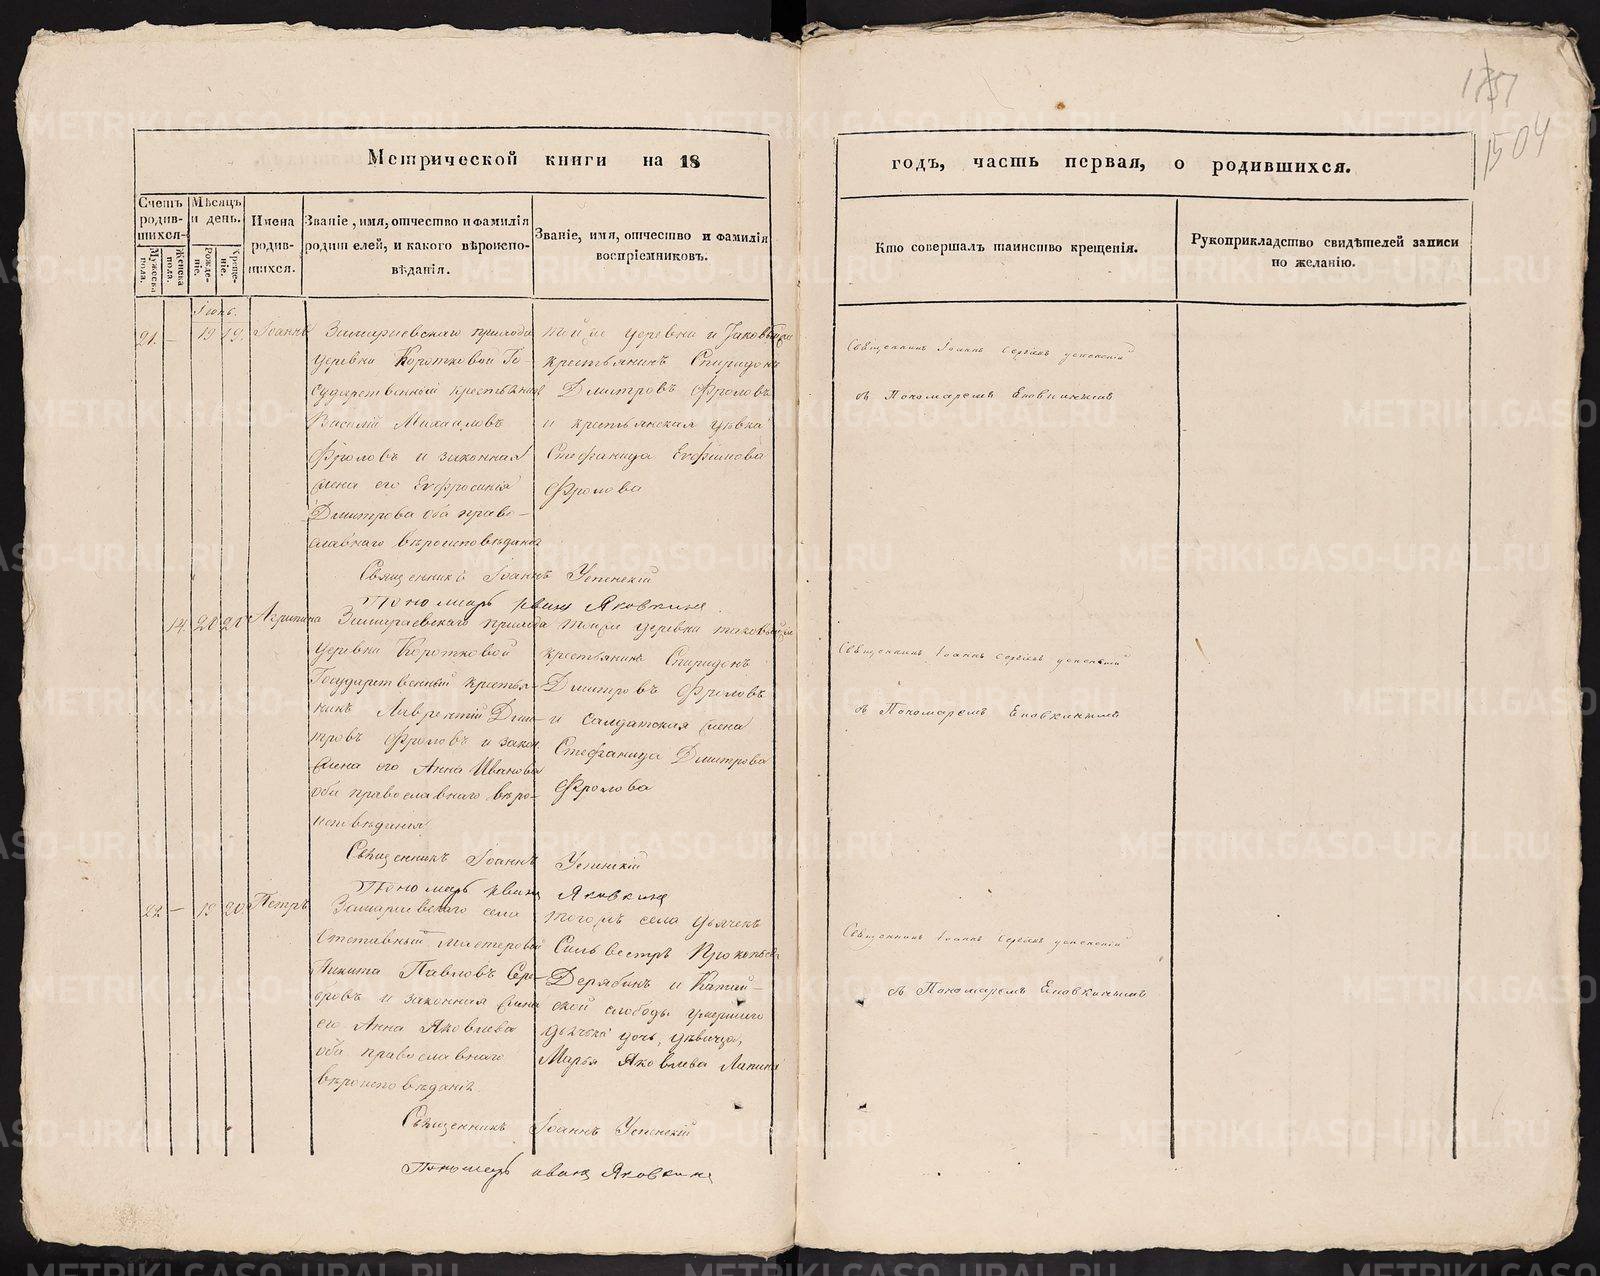 1504
Метрической книги на 18
годъ, часть первая, о родившихся.
Счетъ родившихся.
Мужеска пола.
Женска пола.
Мѣсяцъ и день.
Рожденіе.
Крещеніе.
Имена родившихся.
Званіе, имя, отчество и фамилія родителей, и какого вѣроисповѣданія.
Званіе, имя, отчество и фамилія воспріемниковъ.
Кто совершалъ таинство крещенія.
Рукоприкладство свидѣтелей записи по желанію.
Іюнь.
21. — 19 19. Іоаннъ
прихода
деревни Коротковой Го-
сударственный крестьянинъ
Василій Михайловъ
Фроловъ и законная
жена его Евфросинія
Дмитрова оба право-
славнаго вѣроисповѣданія
той же деревни и
крестьянинъ Спиридонъ
Дмитровъ Фроловъ
и крестьянская дѣвка
Стефанида Евфимова
Фролова
Священникъ Іоаннъ Успенскій
Пономарь Иванъ Яковкинъ
Священникъ Іоаннъ Сергіевъ Успенскій
съ Пономаремъ Яковкинымъ
14. 20 21 Агрипина
прихода
деревни Коротковой
Государственный крестья-
нинъ Лаврентій Дми-
тровъ Фроловъ и закон.
жена его Анна Иванова
оба православнаго вѣро-
исповѣданія
той же деревни
крестьянинъ Спиридонъ
Дмитровъ Фроловъ
и салдатская жена
Стефанида Дмитрова
Фролова
Священникъ Іоаннъ Успенскій
Пономарь Иванъ Яковкинъ
Священникъ Іоаннъ Сергіевъ Успенскій
съ Пономаремъ Яковкинымъ
22 — 19 20 Петръ
села
Отставный мастеровой
Никита Павловъ
и законная жена
его Анна Яковлева
оба православнаго
вѣроисповѣданія
тогожъ села дьячекъ
Сильвестръ Прокопьевъ
Дерябинъ и Катай-
ской слободы умершаго
дьячька дочь, дѣвица,
Марья Яковлева Лапина
Священникъ Іоаннъ Успенскій
Пономарь Иванъ Яковкинъ
Священникъ Іоаннъ Сергіевъ Успенскій
съ Пономаремъ Яковкинымъ
METRIKI.GASO-URAL.RU